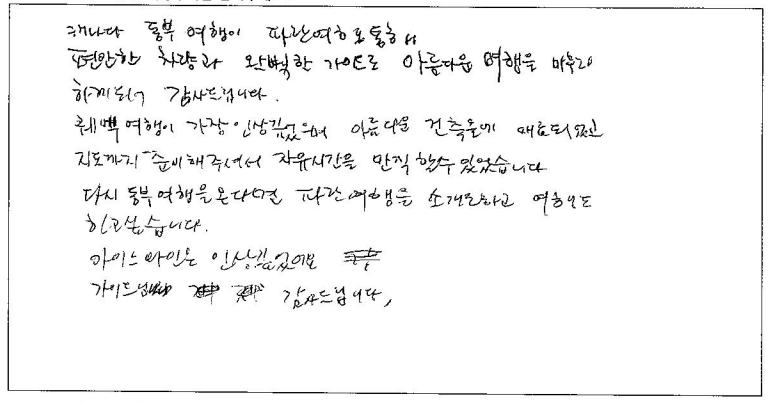 캐나다 동부 여행이 파란여행을 통해
편안한 차량과 완벽한 가이드로 아름다운 여행을 마무리
하게되어 감사드립니다.
퀘백여행이 가장 인상깊었으며 아름다운 건축물에 매료되었고
지도까지 준비해주셔서 자유시간을 만끽 할수 있었습니다
다시 동부여행을 온다면 파란여행을 소개도하고 여행도
하고싶습니다.
아이스와인도 인상깊었어요
가이드님 감사드립니다,